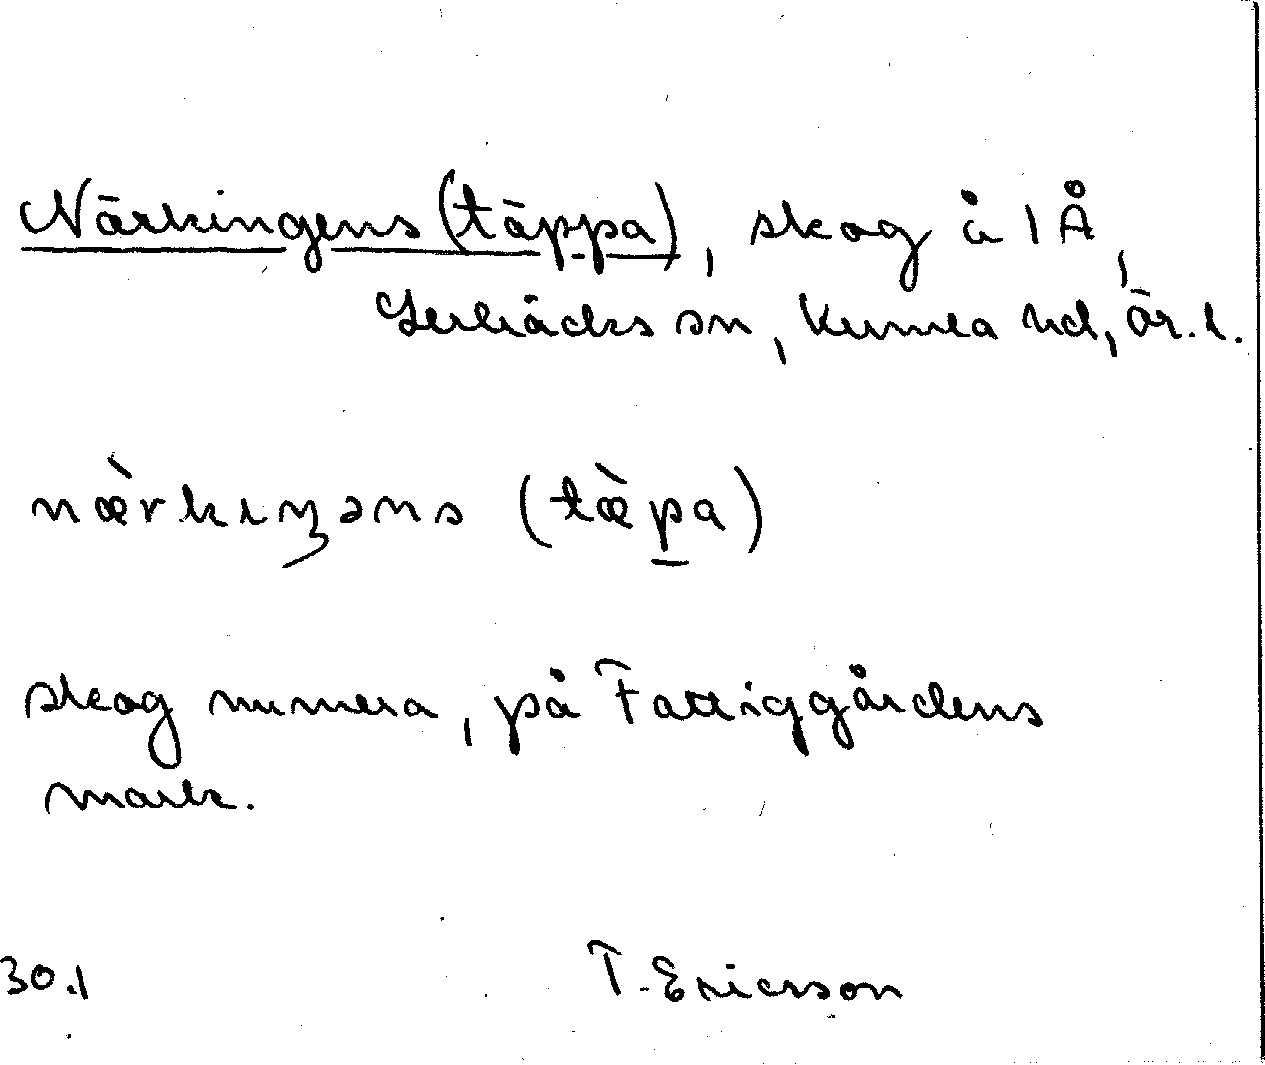 Närkingens (täppa), skog å 1 Å,
Lerbäcks sn, Kumla hd, Ör. l.
nævkıŋəns (tæ̀pa)
skog numera, på Fattiggårdens
mark.
30.1 T. Ericsson